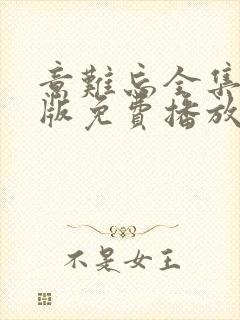 意难忘全集
版免費播放
不是女王